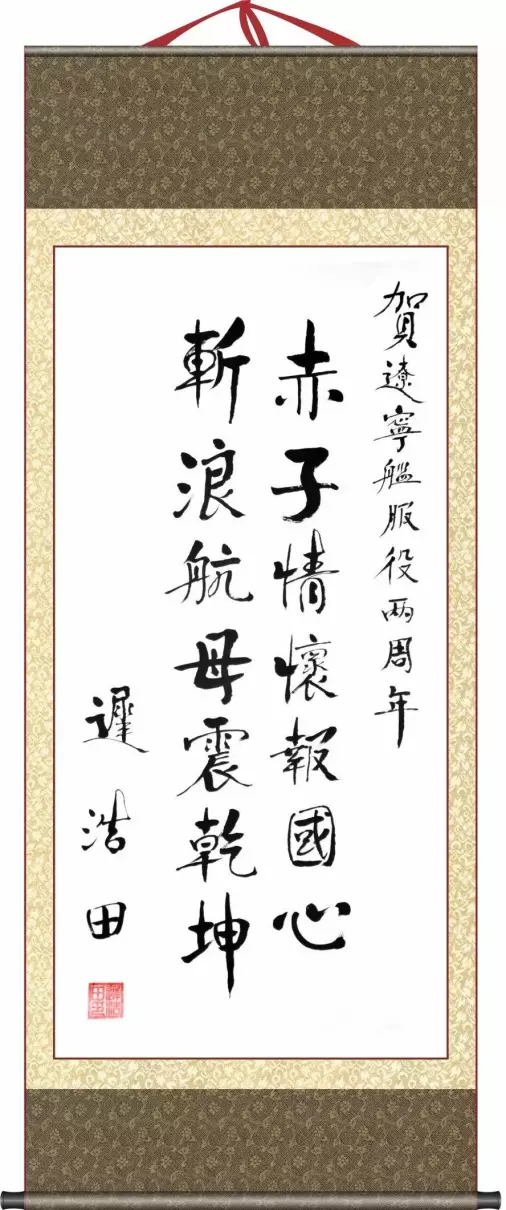 賀遼寧艦服役両周年
赤子情懷報國心
斬浪航母震乾坤
遲浩田